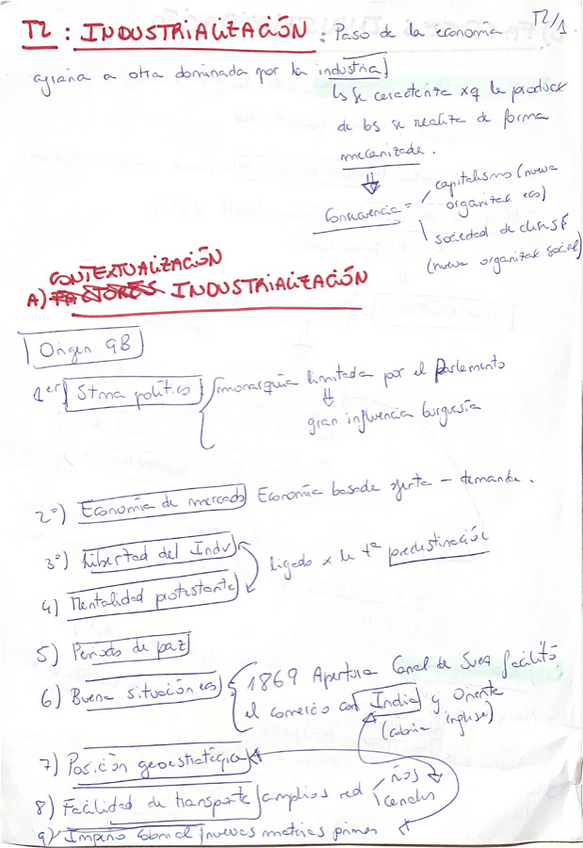 T2/1
T2 : INDUSTRIALIZACIÓN : Paso de la economía
agraria a otra dominada por la industria
↳ se caracteriza xq la product
de bs se realiza de forma
mecanizada.
⇓
Consecuencia = capitalismo (nueva
organizac eco)
sociedad de clases
(nueva organizac social)
CONTEXTUALIZACIÓN
A) FACTORES INDUSTRIALIZACIÓN
Origen GB
1er) Stma político monarquía limitada por el Parlamento
⇓
gran influencia burguesía
2º) Economía de mercado Economía basada oferta - demanda.
3º) Libertad del Indv
ligado x la tª predestinación
4) Mentalidad protestante
5) Periodo de paz
6) Buena situación eco 1869 Apertura Canal de Suez facilitó
el comercio con India y Oriente
(colonia inglesa)
7) Posición geoestratégica
8) Facilidad de transporte amplios red ríos
canales
9) Imperio colonial nuevas materias primas